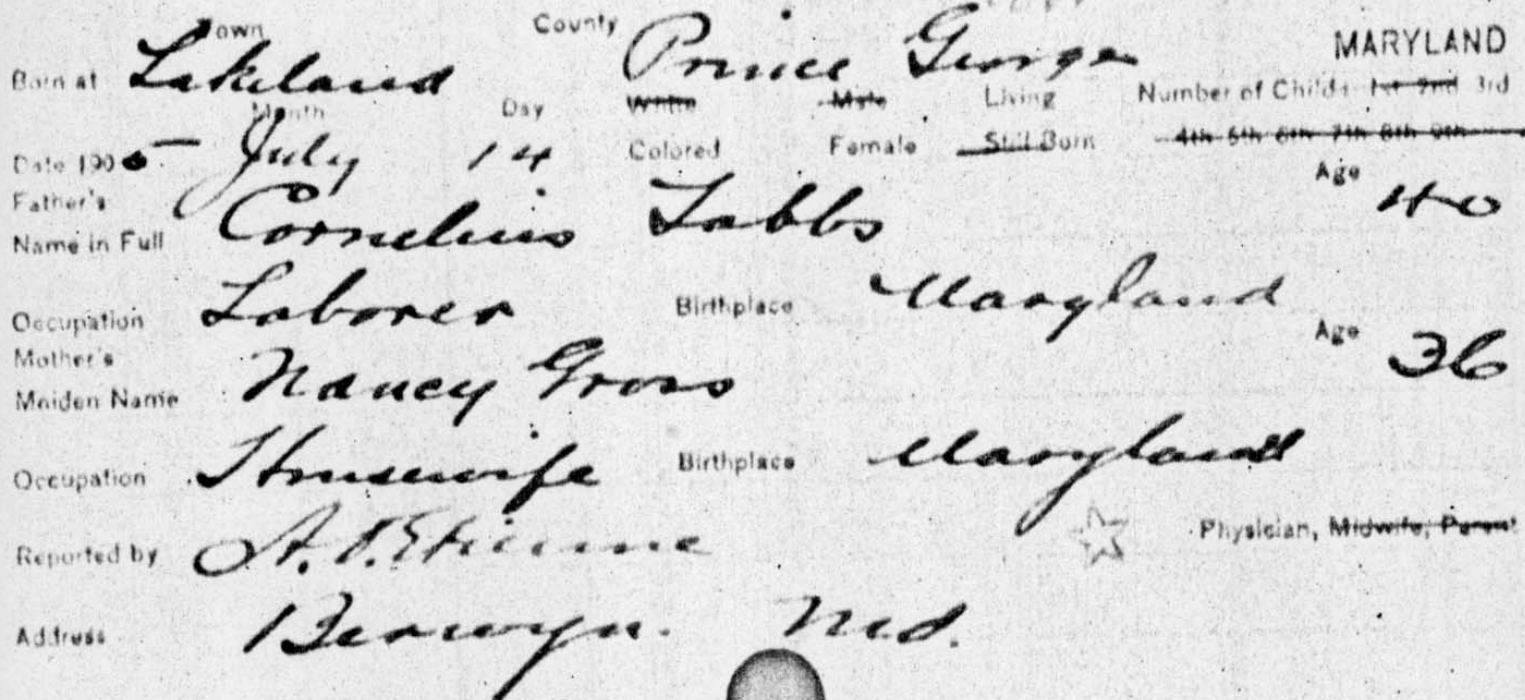 Town County MARYLAND
Born at Lakeland Prince George
Month Day White Male Living Number of Child: 1st 2nd 3rd
Date 1905 July 14 Colored Female Still Born 4th 5th 6th 7th 8th 9th
Father's Age
Name in Full Cornelius Tabbs 40
Occupation Laborer Birthplace Maryland
Mother's Age
Maiden Name Nancy Gross 36
Occupation Housewife Birthplace Maryland
Reported by A. O. Etienne Physician, Midwife, Parent
Address Berwyn. Md.